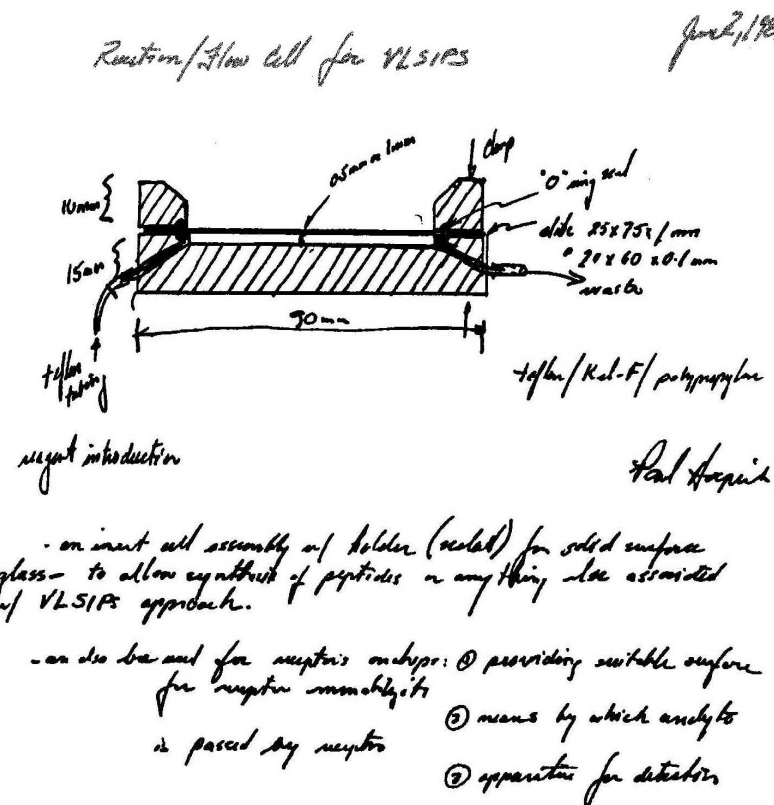 June 2, 198
Reaction/Flow Cell for VLSIPS
clamp
0.5mm - 1mm
"O" ring seal
10mm
slide 25x75x1mm
20x60x0.1mm
15mm
waste
90mm
teflon
tubing
teflon/Kel-F/polypropylene
reagent introduction
Paul
- an inert cell assembly w/ holder (sealed) for solid surface
glass - to allow synthesis of peptides or anything else associated
w/ VLSIPS approach.
- can also be used for receptors on chips: ① providing suitable surface
for receptor
② means by which analyte
is passed by receptor
③ apparatus for detection